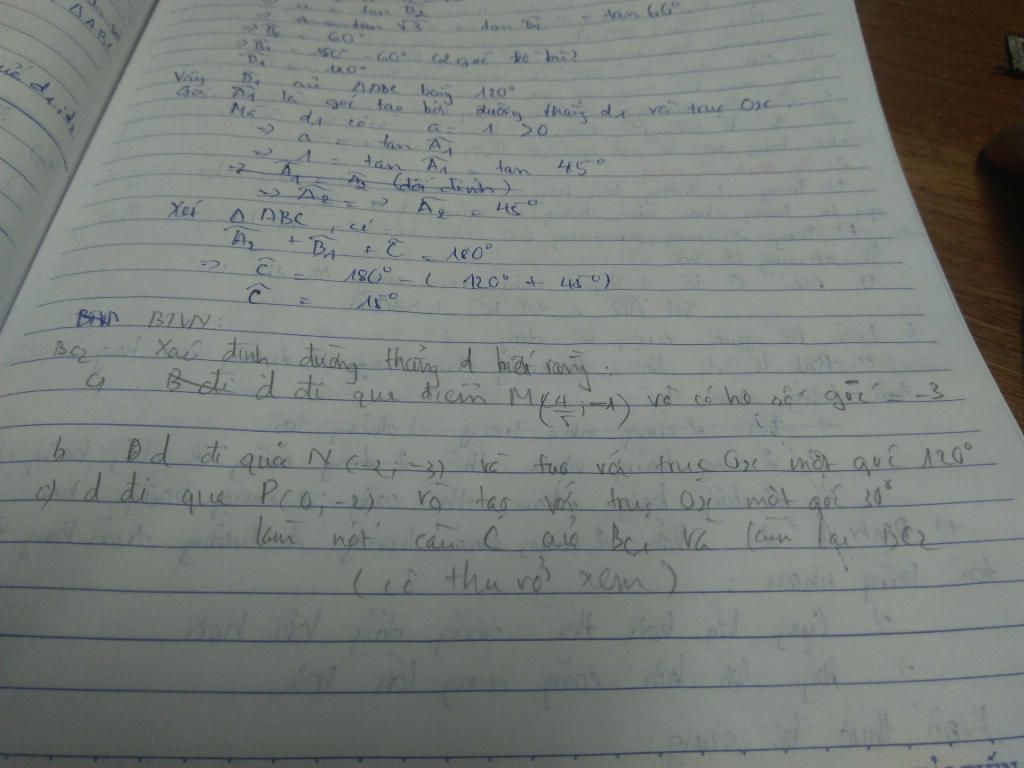 ⇒ a = tan B₂
⇒ a = tan √3 = tan B₁ = tan 60°
⇒ B₂ = 60°
⇒ B₁ = 180° - 60° (2 góc kề bù)
B₁ = 120°
Vậy B₁ của ΔABC bằng 120°
Gọi A₁ là góc tạo bởi đường thẳng d₁ và trục Ox.
Mà d₁ có a = 1 > 0
⇒ a = tan A₁
⇒ 1 = tan A₁ = tan 45°
⇒ A₁ = A₂ (đối đỉnh)
⇒ A₂ = ⇒ A₂ = 45°
Xét ΔABC, có:
A₂ + B₁ + C = 180°
⇒ C = 180° - (120° + 45°)
C = 15°
BTVN:
BC2 Xác định đường thẳng d biết rằng:
a) B đi d đi qua điểm M(4/5; -1) và có hệ số góc = -3
b Đ d đi qua N(-2; -3) và tạo với trục Ox một góc 120°
c) d đi qua P(0; -2) và tạo với trục Ox một góc 30°
làm nốt câu C của BC1 và làm lại BC2
(cô thu vở xem)